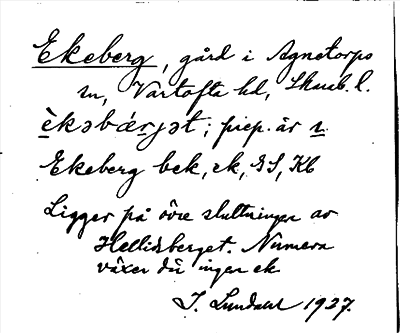 Ekeberg, gård i Agnetorps
sn, Vartofta hd, Skarab. l.
èkəbǽrjət; prep. är п.
Ekeberg bek, ek, GS, Kb
Ligger på övre sluttningen av
Hellidsberget. Numera
växer där ingen ek
J. Lundahl 1927.